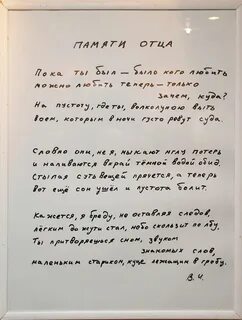 ПАМЯТИ ОТЦА
Пока ты был — было кого любить
можно любить теперь — только
зачем, куда?
На пустоту, где ты, волколуною выть
воем, которым в ночи густо ревут суда.
Словно они, не я, ныкают мглу потерь
и наливаются вграй тёмной водой обид.
Стылая суть вещей прячется, а теперь
вот ещё сон ушёл и пустота болит.
Кажется, я бреду, не оставляя следов,
лёгким до жути стал, небо скользит по лбу,
Ты притворяешься сном, звуком
знакомых слов,
маленьким стариком, куце лежащим в гробу.
В. Ч.